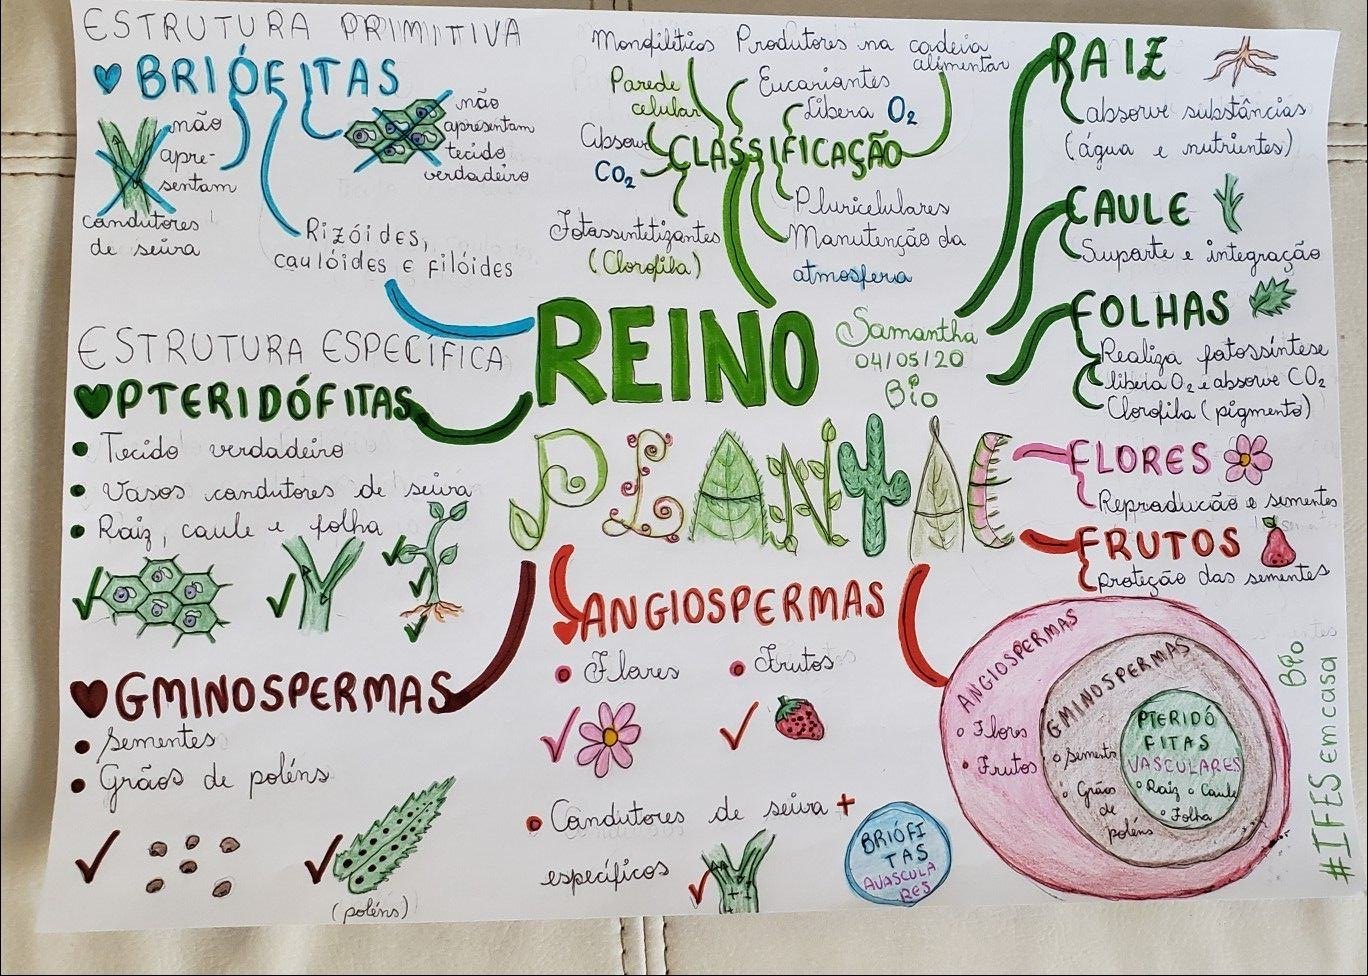 ESTRUTURA PRIMITIVA
BRIÓFITAS
não
apre-
sentam
condutores
de seiva
não
apresentam
tecido
verdadeiro
Rizóides,
caulóides e filóides
Monofiléticos
Produtores na cadeia
alimentar
Parede
celular
Eucariantes
Libera O2
Absorve
CO2
CLASSIFICAÇÃO
Fotossintetizantes
(Clorofila)
Pluricelulares
Manutenção da
atmosfera
RAIZ
absorve substâncias
(água e nutrientes)
CAULE
Suporte e integração
FOLHAS
Realiza fotossíntese
libera O2 e absorve CO2
Clorofila (pigmento)
FLORES
Reprodução e sementes
FRUTOS
proteção das sementes
REINO
PLANTAE
Samantha
04/05/20
Bio
ESTRUTURA ESPECÍFICA
PTERIDÓFITAS
Tecido verdadeiro
Vasos condutores de seiva
Raiz, caule e folha
GMINOSPERMAS
Sementes
Grãos de poléns
(poléns)
ANGIOSPERMAS
Flores
Frutos
Condutores de seiva +
específicos
BRIÓFI
TAS
AVASCULA
RES
ANGIOSPERMAS
Flores
Frutos
GMINOSPERMAS
Semente
Grãos
de
poléns
PTERIDÓ
FITAS
VASCULARES
Raiz
Caule
Folha
Bio
#IFESemcasa